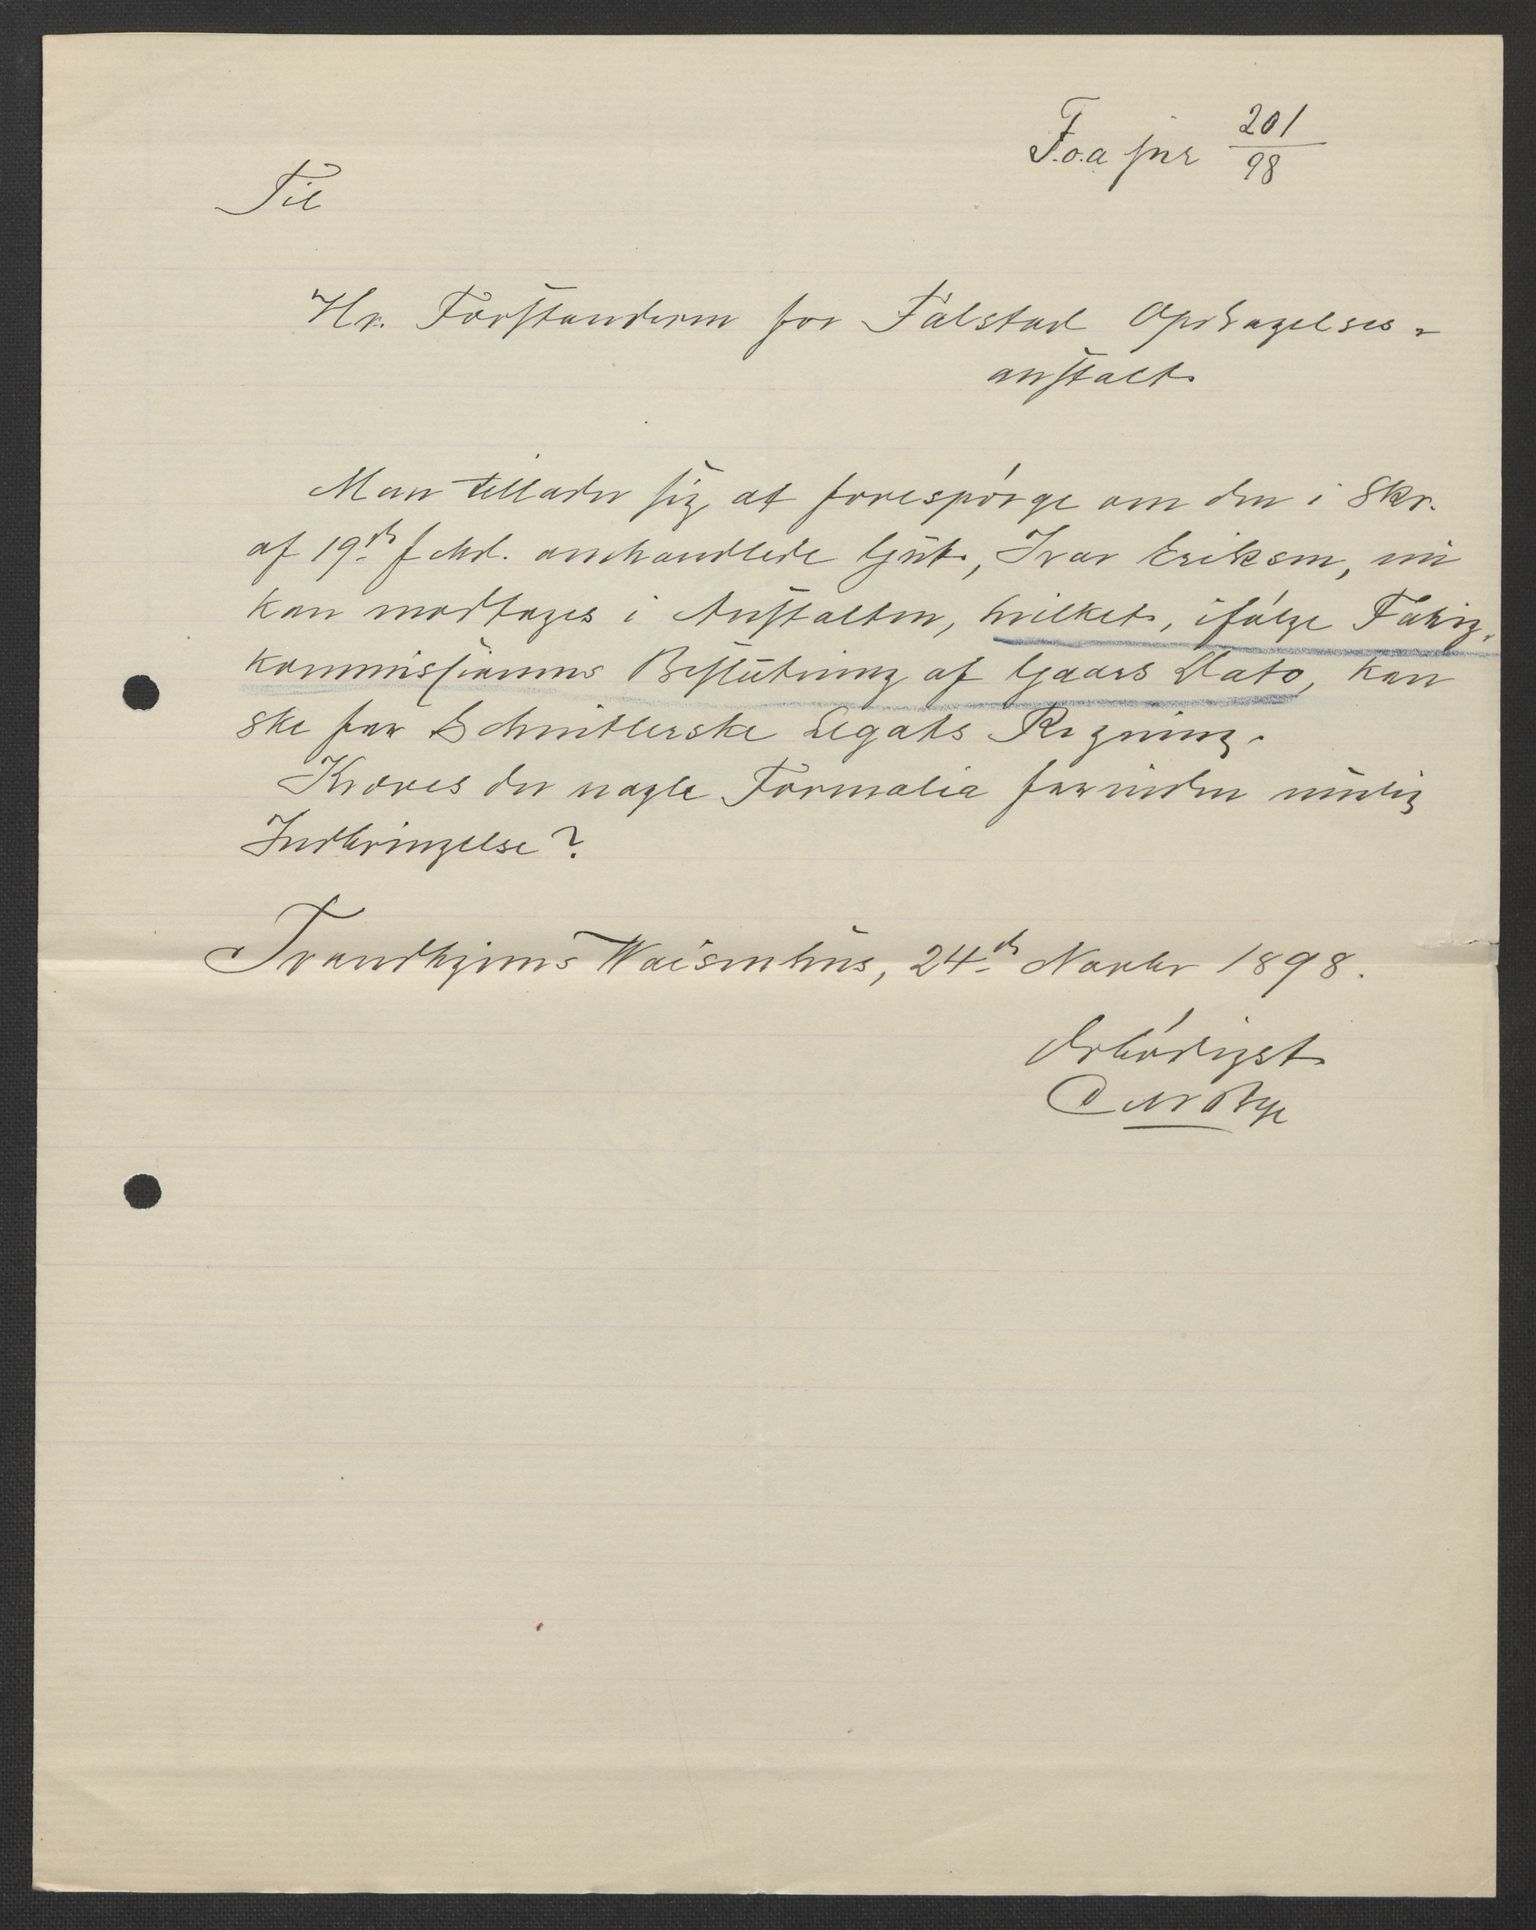 F.o.a jnr 201/98
Til
Hr. Forstanderen for Falstad Opdragelses-
anstalt.
Man tillader sig at forespørge om den i Skr.
af 19de f. Md. omhandlede Gut, Ivar Eriksen, nu
kan modtages i Anstalten, hvilket, ifølge Fattig-
kommissionens Beslutning af Gaars Dato, kan
ske for Schnitlerske Legats Regning.
Kræves der nogle Formalia forinden mulig
Indbringelse?
Trondhjems Waisenhus, 24de Novbr 1898.
Ærbødigst